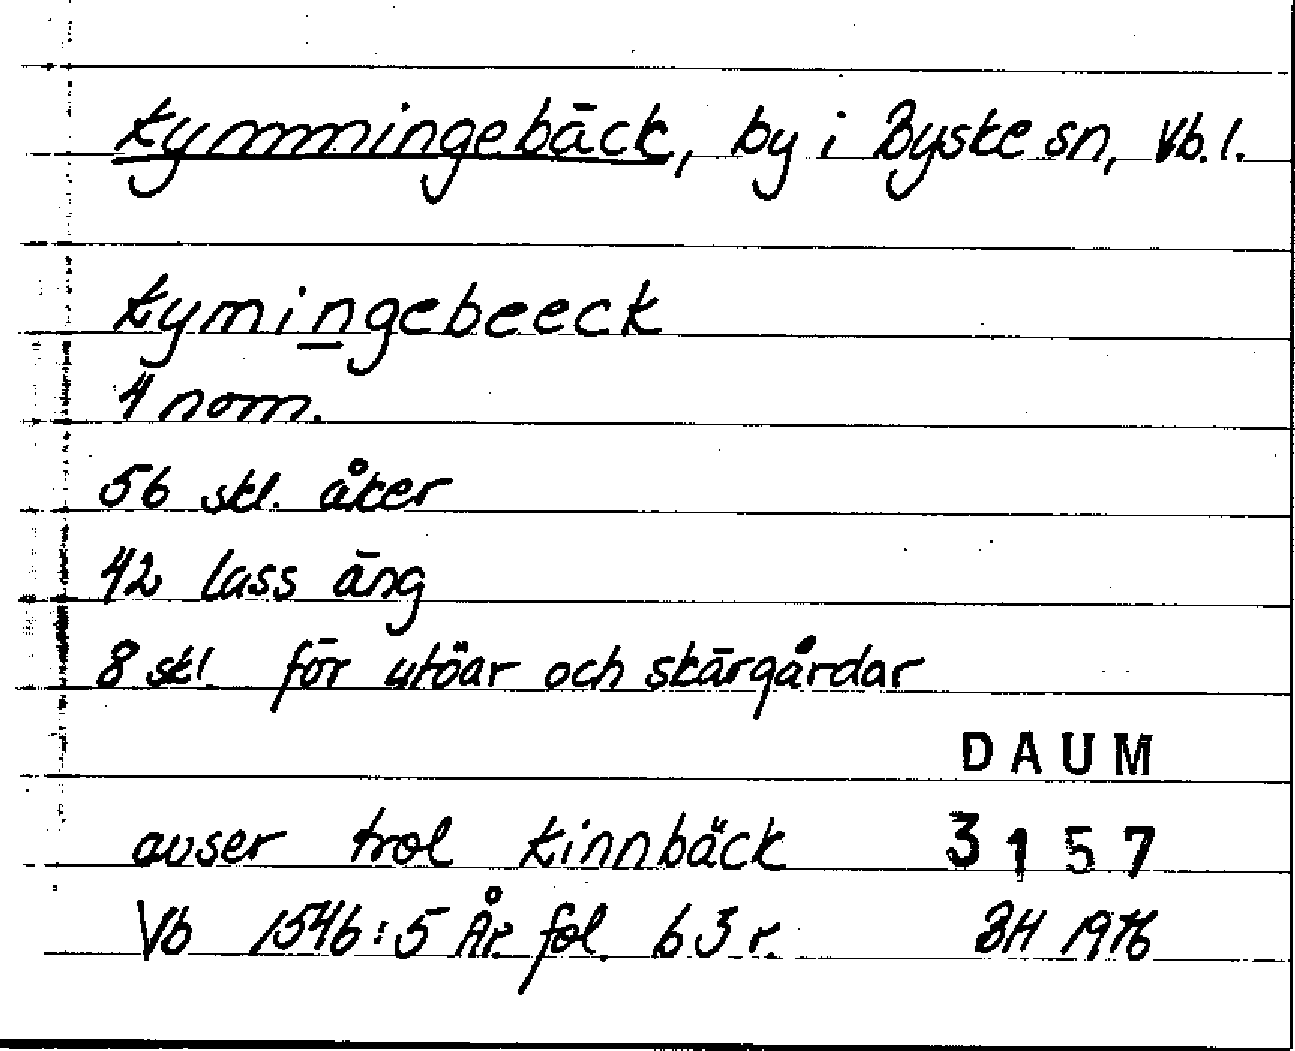 Kymmingebäck, by i Byske sn, Vb. l.
Kymingebeeck
4 nom.
56 skl. åker
42 lass äng
8 skl. för utöar och skärgårdar
DAUM
avser trol Kinnbäck 3157
Vb 1546:5 ÅR fol. 63 r. BH 1976